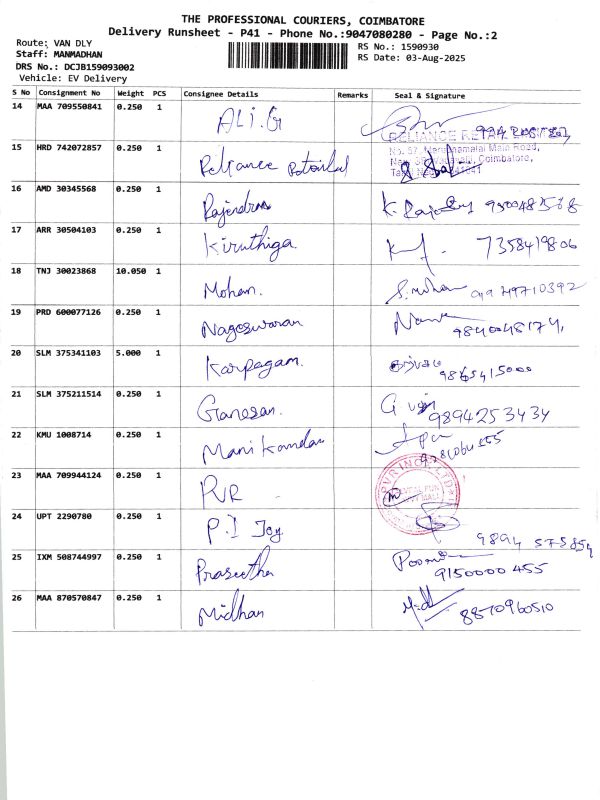 THE PROFESSIONAL COURIERS, COIMBATORE
Delivery Runsheet - P41 - Phone No.:9047080280 - Page No.:2
Route: VAN DLY
RS No.: 1590930
Staff: MANMADHAN
RS Date: 03-Aug-2025
DRS No.: DCJB159093002
Vehicle: EV Delivery
S No Consignment No Weight PCS Consignee Details Remarks Seal & Signature
14 MAA 709550841 0.250 1 ALI.G
RELIANCE RETAIL
15 HRD 742072857 0.250 1 Reliance
Coimbatore,
16 AMD 30345568 0.250 1 Rajendran
17 ARR 30504103 0.250 1 Kiruthiga 7358419806
18 TNJ 30023868 10.050 1 Mohan.
19 PRD 600077126 0.250 1 Nageswaran 9840048174,
20 SLM 375341103 5.000 1 Karpagam. 9865415000
21 SLM 375211514 0.250 1 Ganesan. 9894253434
22 KMU 1008714 0.250 1 Manikandan
23 MAA 709944124 0.250 1 PVR PVR INOX LTD
24 UPT 2290780 0.250 1 P.I Joy
25 IXM 508744997 0.250 1 Praseetha 9150000455
26 MAA 870570847 0.250 1 Midhan 8870960510